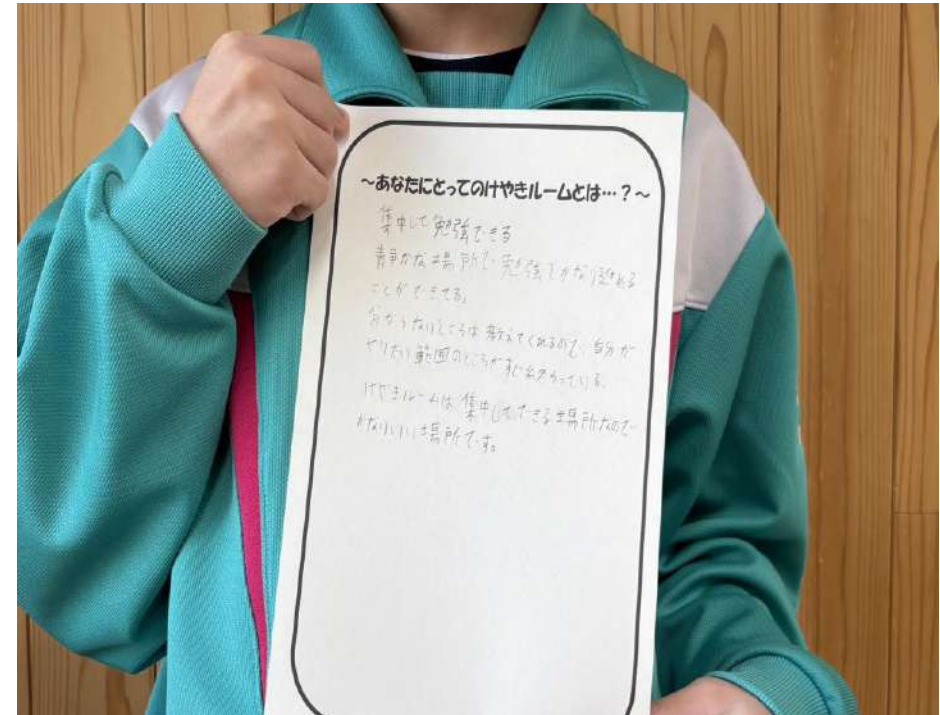 ～あなたにとってのけやきルームとは…？～
集中して勉強できる
静かな場所で勉強でかなり進める
ことができてる。
分からないところは教えてくれるので、自分が
やりたい範囲のところがすじ終わっている。
けやきルームは集中してできる場所なので
かなりいい場所です。